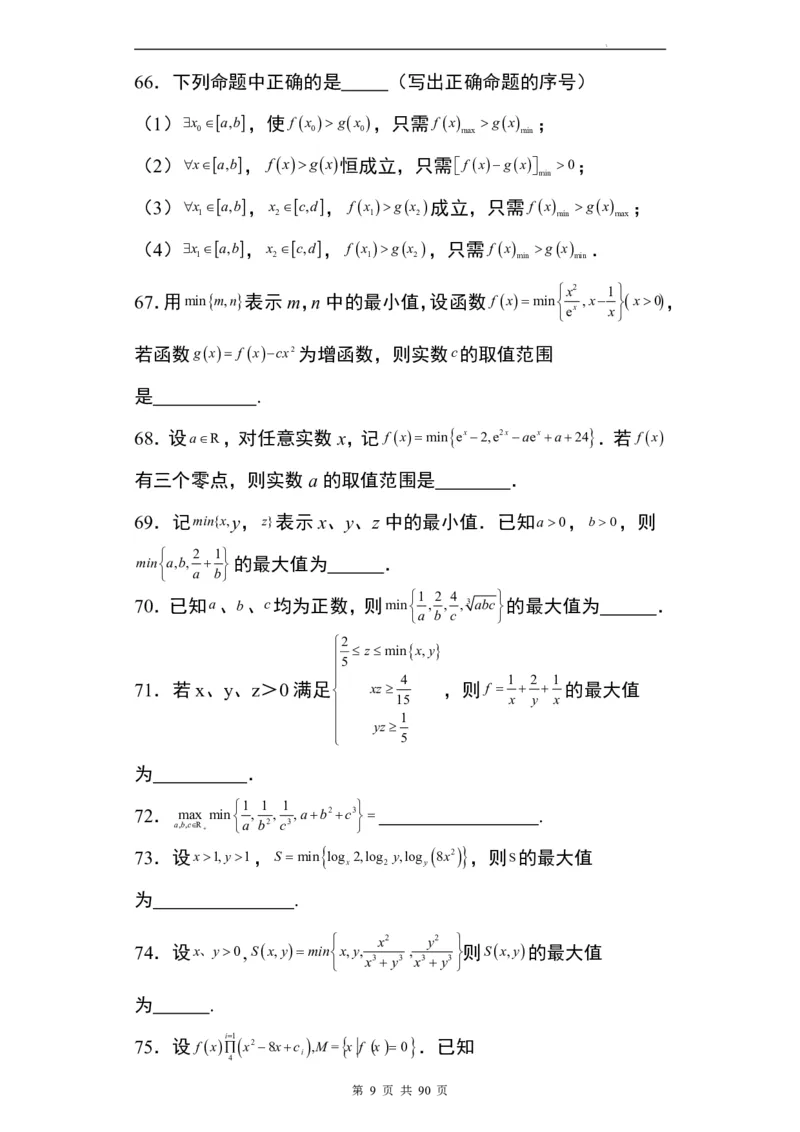 66．下列命题中正确的是_____（写出正确命题的序号）
（1）∃x₀∈[a,b]，使f(x₀)>g(x₀)，只需f(x)max>g(x)min；
（2）∀x∈[a,b]，f(x)>g(x)恒成立，只需[f(x)−g(x)]min>0；
（3）∀x₁∈[a,b]，x₂∈[c,d]，f(x₁)>g(x₂)成立，只需f(x)min>g(x)max；
（4）∃x₁∈[a,b]，x₂∈[c,d]，f(x₁)>g(x₂)，只需f(x)min>g(x)min．
67．用min{m,n}表示m,n中的最小值，设函数f(x)=min{x²/eˣ,x−1/x}(x>0)，
若函数g(x)=f(x)−cx²为增函数，则实数c的取值范围
是__________.
68．设a∈R，对任意实数x，记f(x)=min{eˣ−2,e²ˣ−aeˣ+a+24}．若f(x)
有三个零点，则实数a的取值范围是________．
69．记min{x,y，z}表示x、y、z中的最小值．已知a>0，b>0，则
min{a,b,2/a+1/b}的最大值为______．
70．已知a、b、c均为正数，则min{1/a,2/b,4/c,∛abc}的最大值为______．
71．若x、y、z＞0满足{2/5≤z≤min{x,y} xz≥4/15 yz≥1/5，则f=1/x+2/y+1/x的最大值
为__________．
72．max a,b,c∈R₊ min{1/a,1/b²,1/c³,a+b²+c³}=_________________.
73．设x>1,y>1，S=min{logₓ2,log₂y,log_y(8x²)}，则S的最大值
为_______________.
74．设x、y>0,S(x,y)=min{x,y,x²/(x³+y³),y²/(x³+y³)}则S(x,y)的最大值
为______.
75．设f(x)∏i=1 4(x²−8x+cᵢ),M={x|f(x)=0}．已知
第 9 页 共 90 页